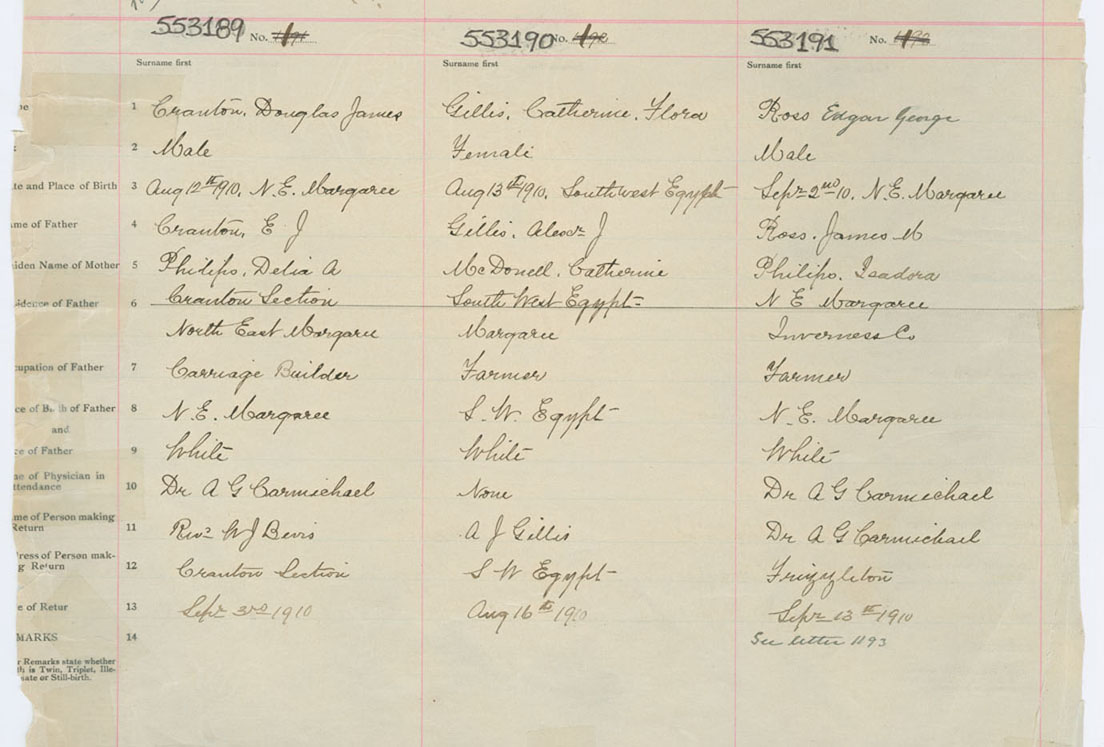 553189 No.
553190 No.
553191 No.
Surname first
Surname first
Surname first
1 Cranton, Douglas James
Gillis, Catherine, Flora
Ross Edgar George
2 Male
Female
Male
ate and Place of Birth 3 Aug 12th 1910, N.E. Margaree
Aug 13th 1910, Southwest Egypt
Sept 2nd 10, N.E. Margaree
me of Father 4 Cranton, E J
Gillis, Alexr J
Ross, James M
iden Name of Mother 5 Philips, Delia A
McDonell, Catherine
Philips, Isadora
idence of Father 6 Cranton Section
South West Egypt
N E Margaree
North East Margaree
Margaree
Inverness Co
cupation of Father 7 Carriage Builder
Farmer
Farmer
ce of Birth of Father 8 N.E. Margaree
S. W. Egypt
N.E. Margaree
and
ce of Father 9 White
White
White
me of Physician in
ttendance 10 Dr A G Carmichael
None
Dr A G Carmichael
me of Person making
Return 11 Revd W J Bevis
A J Gillis
Dr A G Carmichael
ress of Person mak-
g Return 12 Cranton Section
S W Egypt
Frizzleton
e of Retur 13 Sept 3rd 1910
Aug 16th 1910
Sept 13th 1910
MARKS 14
See letter 1193
r Remarks state whether
th is Twin, Triplet, Ille-
ate or Still-birth.